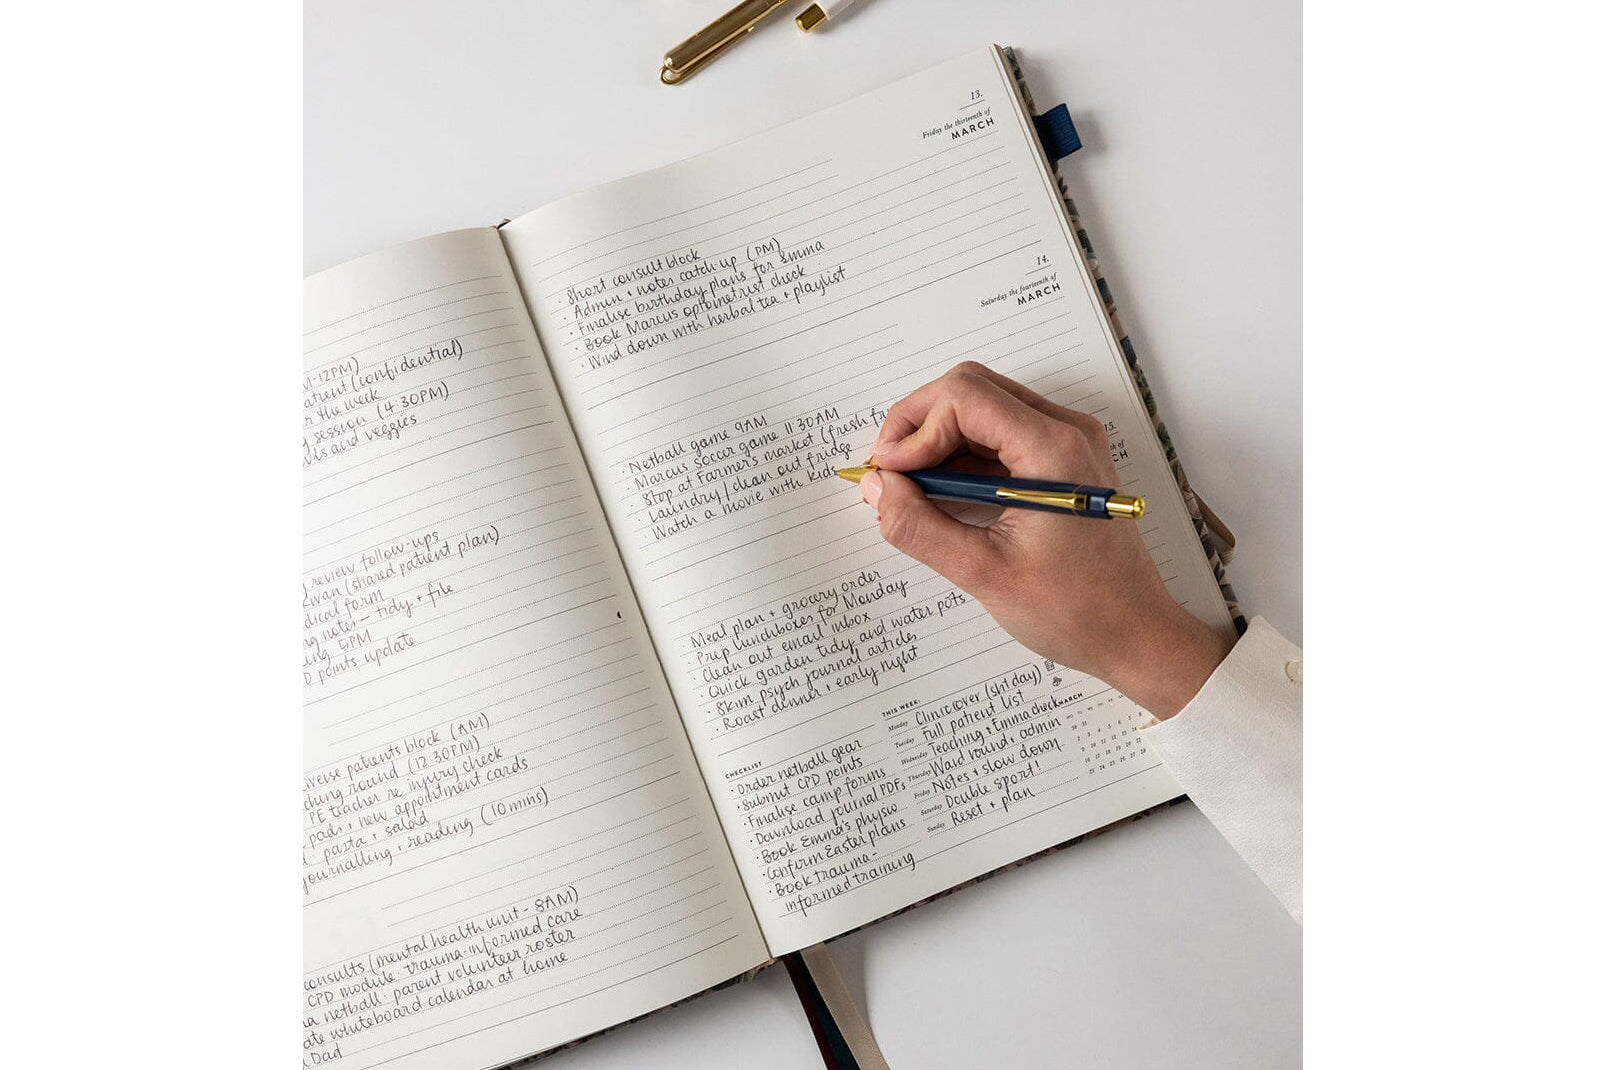 M-12PM)
patient (confidential)
r the week
g session (4:30PM)
and veggies
review follow-ups
Kwan (shared patient plan)
dical form
ng notes – tidy + file
5PM
D points update
verse patients block (AM)
ching round (12:30PM)
PE teacher re injury check
pads + new appointment cards
pasta + salad
journalling + reading (10mins)
consults (mental health unit - 8AM)
CPD module: trauma-informed care
netball: parent volunteer roster
ate whiteboard calendar at home
Dad
13.
Friday the thirteenth of
MARCH
· Short consult block
· Admin + notes catch-up (PM)
· Finalise birthday plans for Emma
· Book Marcus optometrist check
· Wind down with herbal tea + playlist
14.
Saturday the fourteenth of
MARCH
· Netball game 9AM
· Marcus soccer game 11:30AM
· Stop at Farmer's market (fresh fr
· Laundry / clean out fridge
· Watch a movie with kids
15.
of
CH
· Meal plan + grocery order
· Prep lunchboxes for Monday
· Clean out email inbox
· Quick garden tidy and water pots
· Skim psych journal articles
· Roast dinner + early night
CHECKLIST
· Order netball gear
· Submit CPD points
· Finalise camp forms
· Download journal PDFs
· Book Emma's physio
· Confirm Easter plans
· Book trauma-
informed training
THIS WEEK:
Monday Clinic cover (sht day)
Tuesday Full patient list
Wednesday Teaching + Emma check
Thursday Ward round + admin
Friday Notes + slow down
Saturday Double sport!
Sunday Reset + plan
MARCH